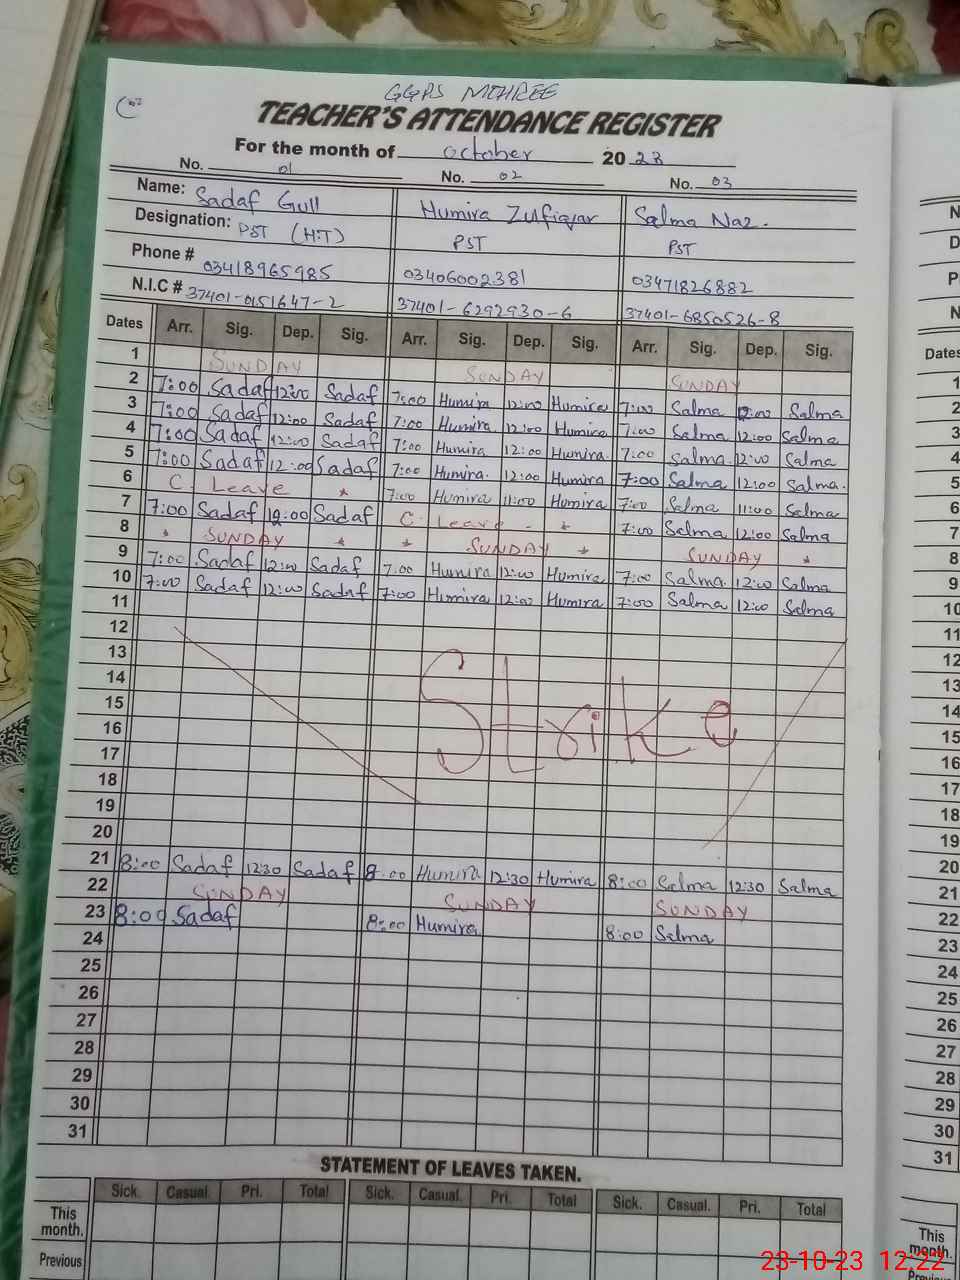 GGPS MOHREE
TEACHER'S ATTENDANCE REGISTER
For the month of October 20 23
No. 01 No. 02 No. 03
Name: Sadaf Gull Humira Zulfiqar Salma Naz.
Designation: PST (H.T) PST PST
Phone # 03418965985 03406002381 03471826882
N.I.C # 37401-0151647-2 37401-6292930-6 37401-6850526-8
Dates Arr. Sig. Dep. Sig. Arr. Sig. Dep. Sig. Arr. Sig. Dep. Sig.
1 SUNDAY SUNDAY SUNDAY
2 7:00 Sadaf 12:00 Sadaf 7:00 Humira 12:00 Humira 7:00 Salma 12:00 Salma
3 7:00 Sadaf 12:00 Sadaf 7:00 Humira 12:00 Humira 7:00 Salma 12:00 Salma
4 7:00 Sadaf 12:00 Sadaf 7:00 Humira 12:00 Humira. 7:00 Salma. 12:00 Salma
5 7:00 Sadaf 12:00 Sadaf 7:00 Humira. 12:00 Humira 7:00 Salma 12:00 Salma.
6 C. Leave * 7:00 Humira 11:00 Humira 7:00 Salma 11:00 Salma
7 7:00 Sadaf 12:00 Sadaf C. Leave - * 7:00 Salma 12:00 Salma
8 * SUNDAY * * SUNDAY * SUNDAY *
9 7:00 Sadaf 12:00 Sadaf 7:00 Humira 12:00 Humira 7:00 Salma. 12:00 Salma
10 7:00 Sadaf 12:00 Sadaf 7:00 Humira 12:00 Humira 7:00 Salma 12:00 Salma
11
12
13
14
15
16 Strike
17
18
19
20
21 8:00 Sadaf 12:30 Sadaf 8:00 Humira 12:30 Humira 8:00 Salma 12:30 Salma
22 SUNDAY SUNDAY SUNDAY
23 8:00 Sadaf 8:00 Humira 8:00 Salma
24
25
26
27
28
29
30
31
STATEMENT OF LEAVES TAKEN.
Sick. Casual. Pri. Total Sick. Casual. Pri. Total Sick. Casual. Pri. Total
This month.
Previous
N
D
P
N
Dates
1
2
3
4
5
6
7
8
9
10
11
12
13
14
15
16
17
18
19
20
21
22
23
24
25
26
27
28
29
30
31
This
month.
23-10-23 12:22